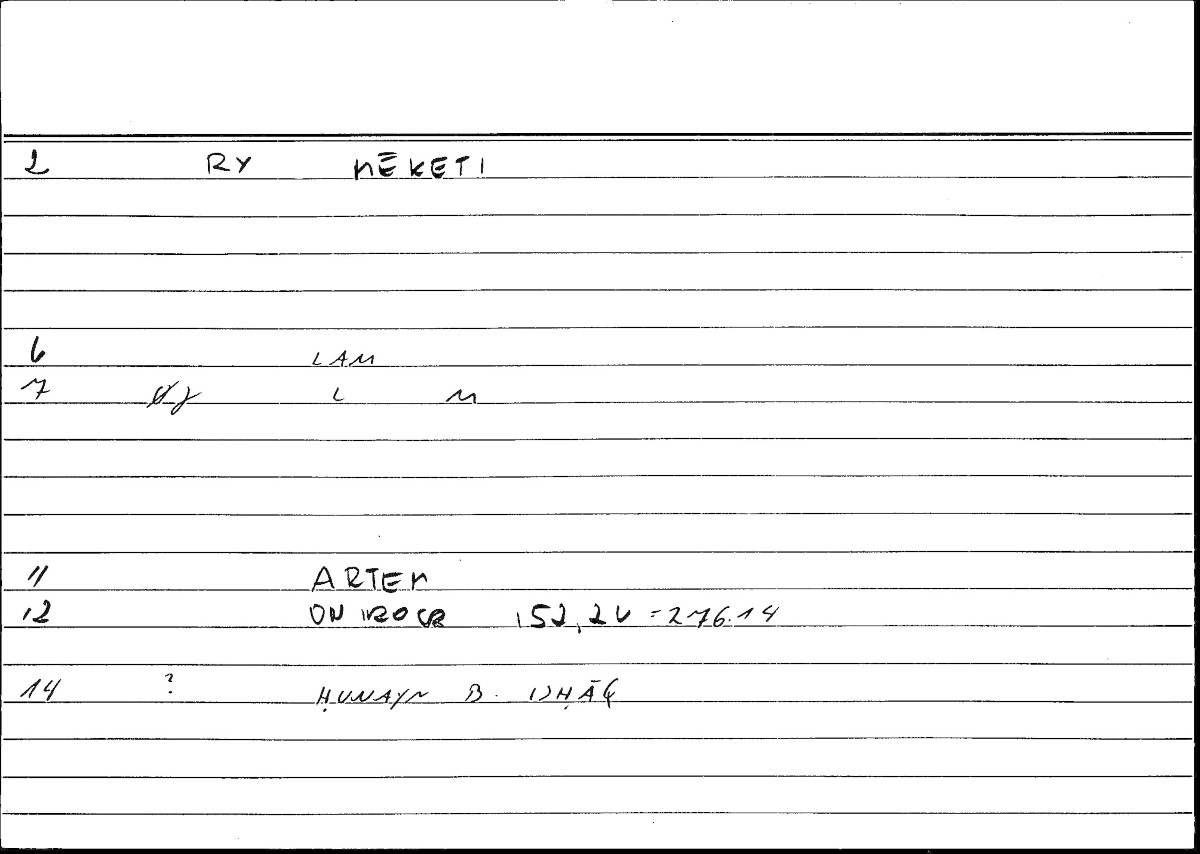 2 RY MĒKETI
6 LAM
7 L M
11 ARTEM
12 ON 152,20 = 276.14
14 ? ḤUNAYN B. ISḤĀQ